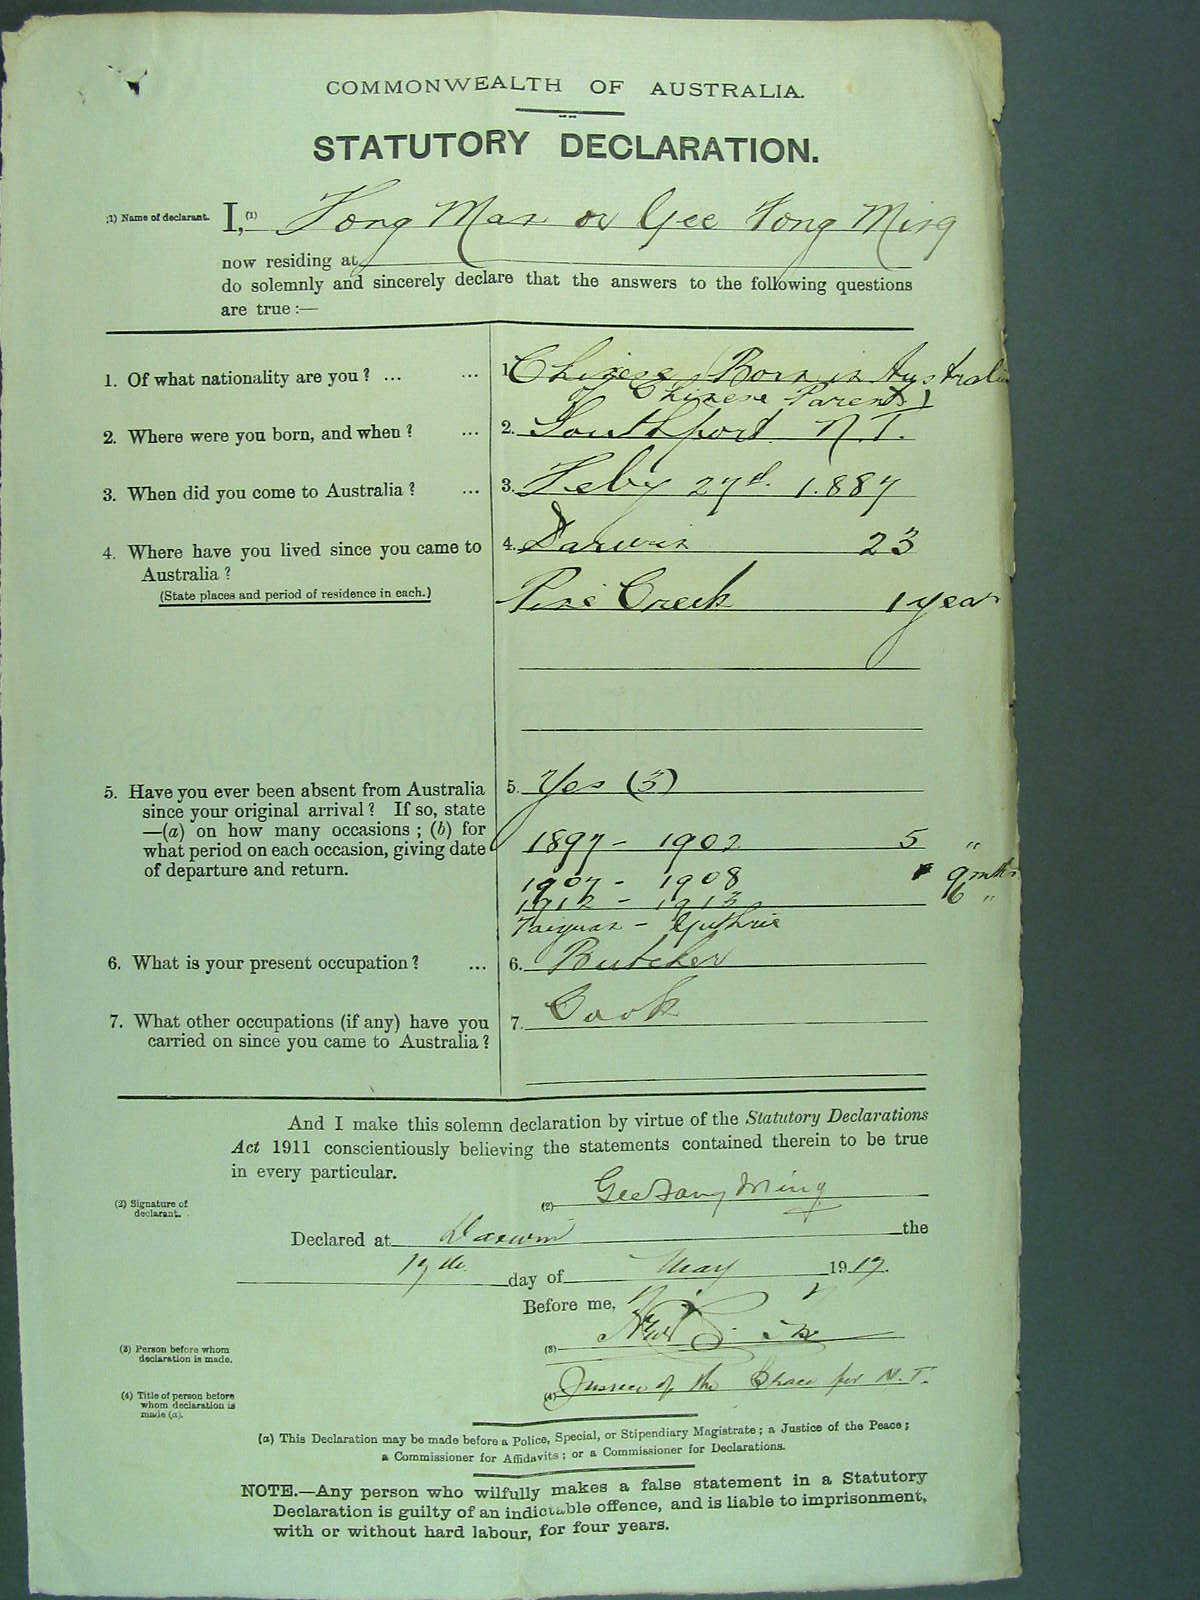 COMMONWEALTH OF AUSTRALIA.
STATUTORY DECLARATION.
(1) Name of declarant. I, (1) Fong Man or Gee Fong Ming
now residing at
do solemnly and sincerely declare that the answers to the following questions
are true :—
1. Of what nationality are you ? ... ... 1. Chinese (Born in Australia
of Chinese Parents)
2. Where were you born, and when ? ... 2. Southport N.T.
3. When did you come to Australia ? ... 3. Feby 27th. 1887
4. Where have you lived since you came to 4. Darwin 23
Australia ?
(State places and period of residence in each.) Pine Creek 1 year
5. Have you ever been absent from Australia 5. Yes (3)
since your original arrival ? If so, state
—(a) on how many occasions ; (b) for
what period on each occasion, giving date 1897 - 1902 5 "
of departure and return. 1907 - 1908 9 mths
1912 - 1913 6 "
Taiyuan - Guthrie
6. What is your present occupation ? ... 6. Butcher
7. What other occupations (if any) have you 7. Cook
carried on since you came to Australia ?
And I make this solemn declaration by virtue of the Statutory Declarations
Act 1911 conscientiously believing the statements contained therein to be true
in every particular.
(2) Signature of
declarant. (2) Gee Fong Ming
Declared at Darwin the
17th day of May 1917.
Before me,
(3) Person before whom
declaration is made. (3)
(4) Title of person before
whom declaration is
made (a). (4) Justice of the Peace for N.T.
(a) This Declaration may be made before a Police, Special, or Stipendiary Magistrate ; a Justice of the Peace ;
a Commissioner for Affidavits ; or a Commissioner for Declarations.
NOTE.—Any person who wilfully makes a false statement in a Statutory
Declaration is guilty of an indictable offence, and is liable to imprisonment,
with or without hard labour, for four years.